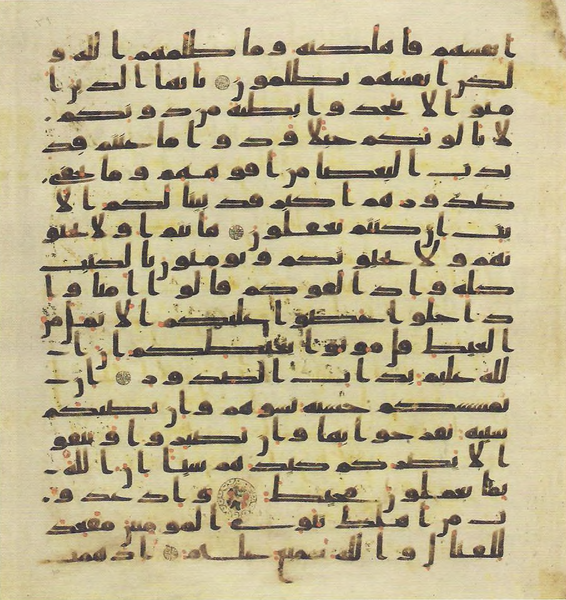 انفسهم فاهلكته وما ظلمهم الله و
لكن انفسهم يظلمون يايها الذين ا
منوا لا تتخذوا بطانة من دونكم
لا يالونكم خبالا ودوا ما عنتم قد
بدت البغضا من افوههم وما تخفى
صدورهم اكبر قد بينا لكم الا
يت ان كنتم تعقلون هانتم اولا تحبو
نهم ولا يحبونكم وتومنون بالكتب
كله واذا لقوكم قالوا امنا وا
ذا خلوا عضوا عليكم الانمل من
الغيظ قل موتوا بغيظكم ان ا
لله عليم بذات الصدور ان
تمسسكم حسنة تسوهم وان تصبكم
سيية يفرحوا بها وان تصبروا وتتقو
ا لا يضركم كيدهم شيا ان الله
بما يعملون محيط واذ غدو
ت من اهلك تبوى المومنين مقعد
للقتال والله سميع عليم اذ همت